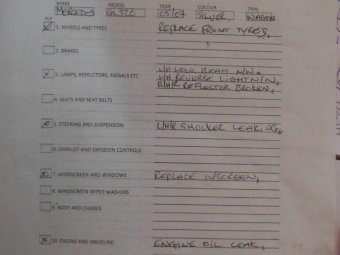 MAKE MODEL YEAR COLOUR TYPE
MERCEDES GL320 05/07 SILVER WAGON
1. WHEELS AND TYRES REPLACE FRONT TYRES.
2. BRAKES
3. LAMPS, REFLECTORS, SIGNALS ETC L/H LOW BEAM N/W.
L/H REVERSE LIGHT N/W.
R/H/R REFLECTOR BROKEN.
4. SEATS AND SEAT BELTS
5. STEERING AND SUSPENSION L/H/R SHOCKER LEAKING.
6. EXHAUST AND EMISSION CONTROLS
7. WINDSCREEN AND WINDOWS REPLACE W/SCREEN.
8. WINDSCREEN WIPER WASHERS
9. BODY AND CHASSIS
10. ENGINE AND DRIVELINE ENGINE OIL LEAK.